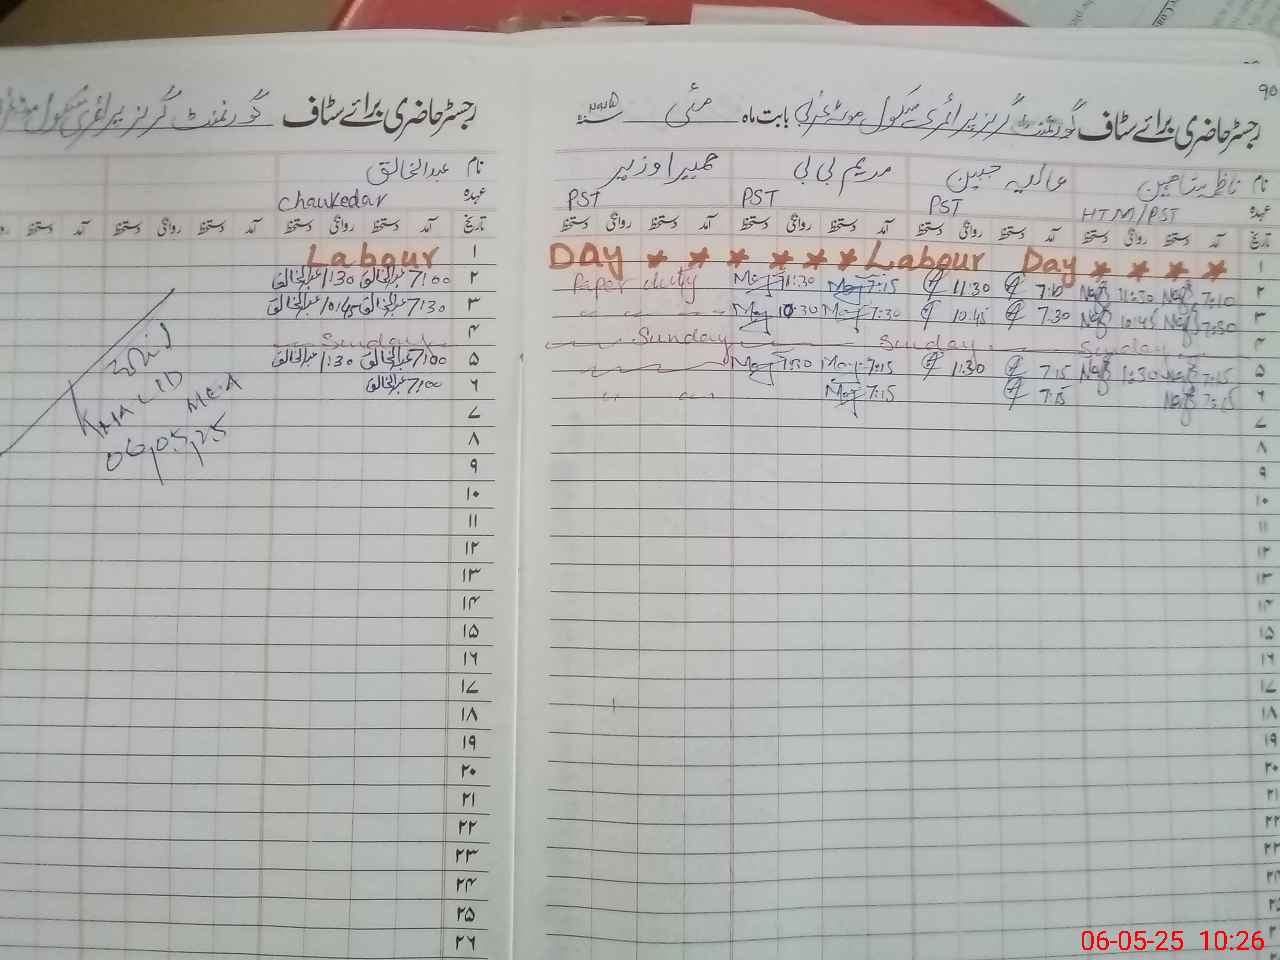 ۹۰
رجسٹر حاضری برائے سٹاف گورنمنٹ گرلز پرائمری سکول بابت ماہ مئی سنہ ۲۰۲۵
نام ناظمہ شاہین عالیہ جبین مریم بی بی حمیرا وزیر
عہدہ HTM/PST PST PST PST
تاریخ آمد دستخط روانگی دستخط آمد دستخط روانگی دستخط آمد دستخط روانگی دستخط آمد دستخط روانگی دستخط
۱ Day ★ ★ ★ ★ ★ ★ Labour Day ★ ★ ★ ★
۲ 7:10 11:30 7:10 11:30 7:15 11:30 Paper duty
۳ 7:30 10:45 7:30 10:45 7:30 10:30 〃 〃
۴ Sunday Sunday Sunday
۵ 7:15 1:30 7:15 1:30 7:15 1:30
۶ 7:15 7:15 7:15 〃 〃
۷
۸
۹
۱۰
۱۱
۱۲
۱۳
۱۴
۱۵
۱۶
۱۷
۱۸
۱۹
۲۰
۲۱
۲۲
۲۳
۲۴
۲۵
رجسٹر حاضری برائے سٹاف گورنمنٹ گرلز پرائمری سکول
نام عبدالخالق
عہدہ Chaukedar
تاریخ آمد دستخط روانگی دستخط آمد دستخط روانگی دستخط
۱ Labour
۲ 7:00 عبدالخالق 1:30 عبدالخالق
۳ 7:30 عبدالخالق 10:45 عبدالخالق
۴ Sunday
۵ 7:00 عبدالخالق 1:30 عبدالخالق
۶ 7:00 عبدالخالق
۷
۸
۹
۱۰
۱۱
۱۲
۱۳
۱۴
۱۵
۱۶
۱۷
۱۸
۱۹
۲۰
۲۱
۲۲
۲۳
۲۴
۲۵
۲۶
KHALID
06,05,25
06-05-25 10:26